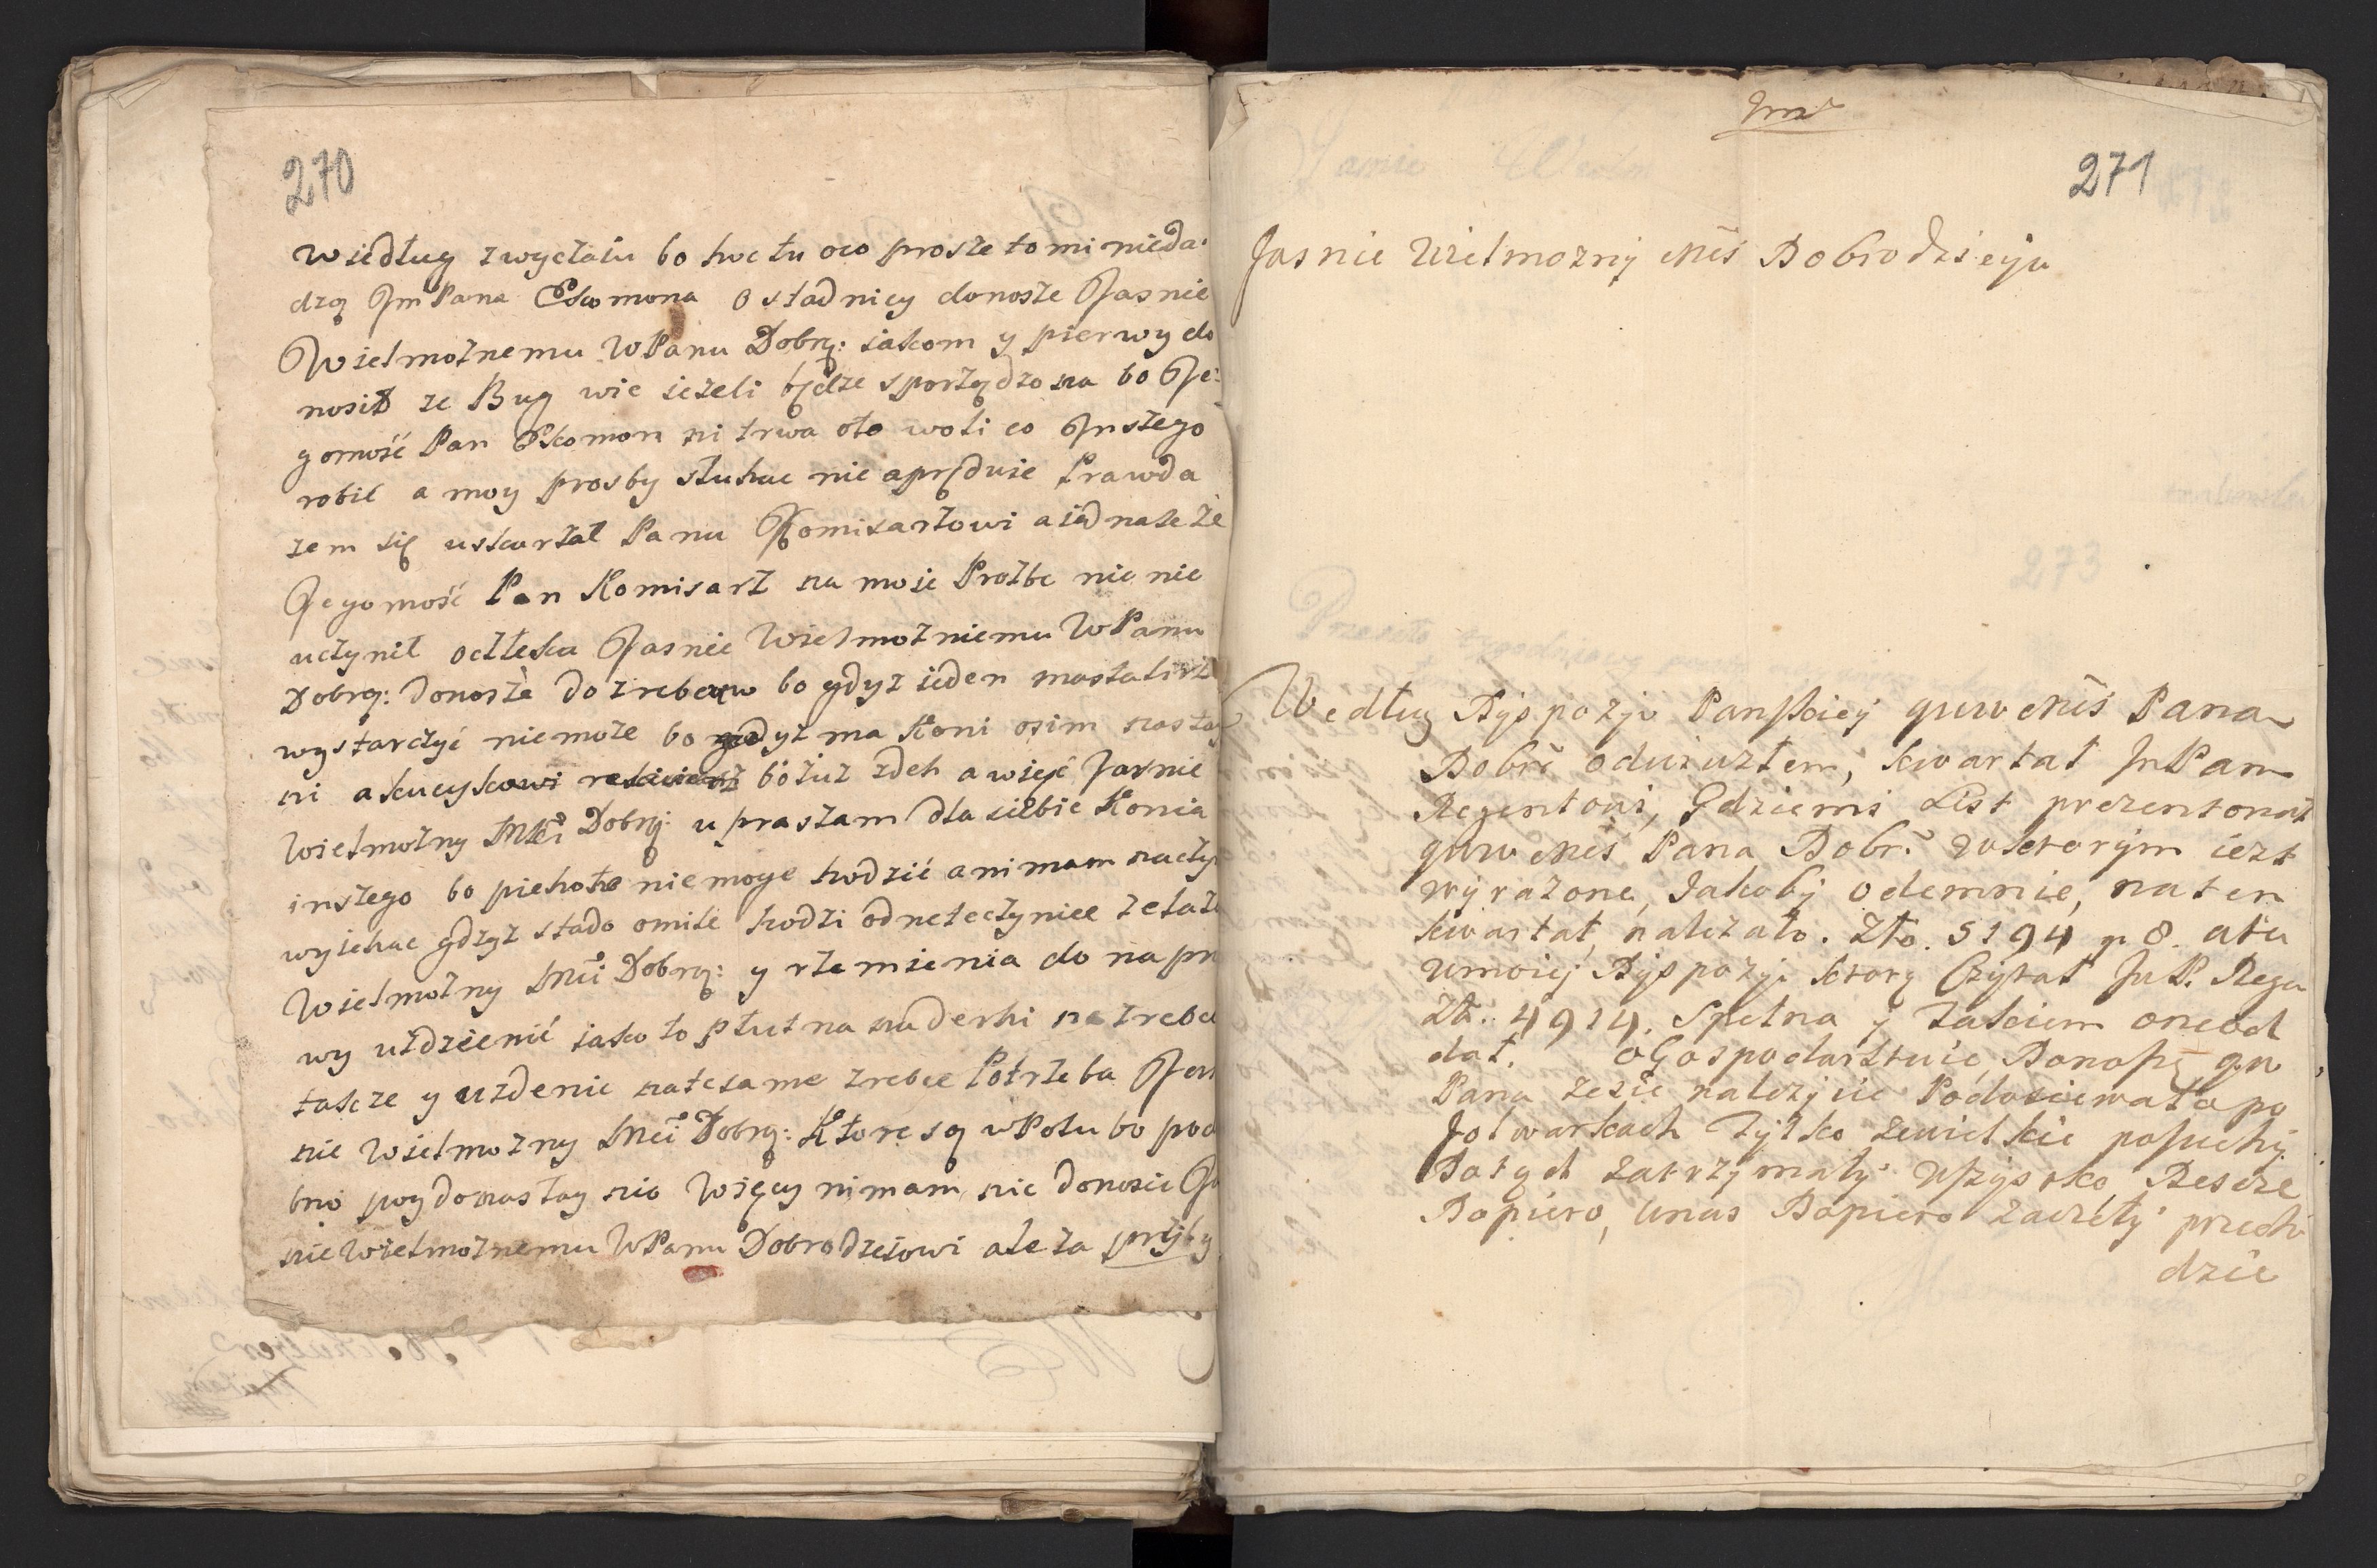 270
wiedług zwyczaiu bo hoc tu oco prosze to mi nieda-
dzą Jm Pana Ekomona o stadnicy donosze Jasnie
Wielmoznemu WPanu Dobrą: iakom y pierwy do
nosił ze Bug wie ieżeli będze sporządzona bo Je:
gomość Pan Ekomon ni trwa oto woli co Inszego
robić a moy prosby słuhac nie Prawda
zem się uskarżał Panu Komisarzowi a iednakże
Jegomość Pan Komisarz na moie Prozbe nic nie
uczynił Jasnie Wielmożniemu WPanu
Dobrą: donosze do zrebcuw bo gdyz ieden mastalirz
wystarczyć niemoże bo gdyż ma Koni osim nastay
ni a bo iuz zdeh a więc Jasnie
Wielmożny Mci Dobrą: upraszam dla siebie Konia
inszego bo piehoto niemoge hodzić ani mam naczy
wyiehac gdzyz stado omile hodzi
Wielmożny Mci Dobrą: y rzemienia do napra
wy uździenić iako to płutna naderki na zrebce
takze y uzdenic natesame zrebce Potrzeba Jas
nie Wielmozny Mci Dobrą: Które są wPolu bo pod
bno poydonastay nio Więcy nimam nic donosic Ja
nie Wielmoznemu WPanu Dobrodzeiowi ale za
271
Jasnie Wielmozny Mci Dobrodzieju
Według Dyspozyi Panskiey Mci Pana
Dobr: kwartał JmPan
Regentowi, Gdziemi List prezentował
Mci Pana Dobr: wktorym iest
wyrazone, Jakoby odemnie, naten
kwartał, należało. Zło. 5194 g 8. atu
wmoiey Dyspozyi ktorą Czytał JmP. Rege
Zł: 4914. Spełna y Zakiem oneod
dał. oGospodarztwie, Donoszę
Pana zesie należycie po
Folwarkach Tylko zewielkie posuchy
Dotych zatrzymały wszystko, Deszcze
Dopiero, unas Dopiero zaczeły przecho
dzic